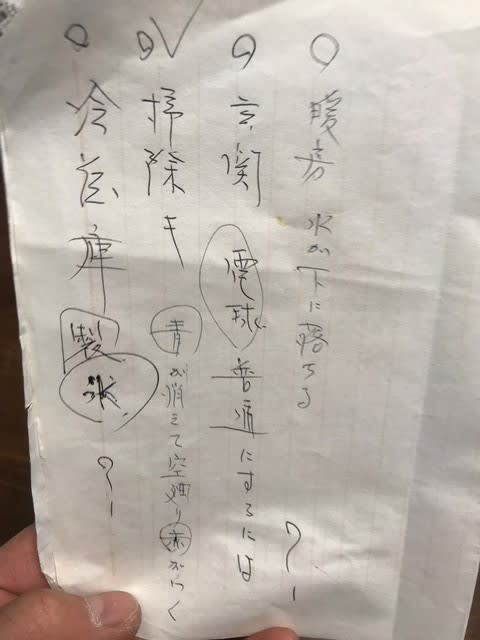 ○暖房 水が下に落ちる
○玄関 電球普通にするには?
○✓掃除キ 青が消えて空廻り赤がつく
○冷蔵庫 製氷?